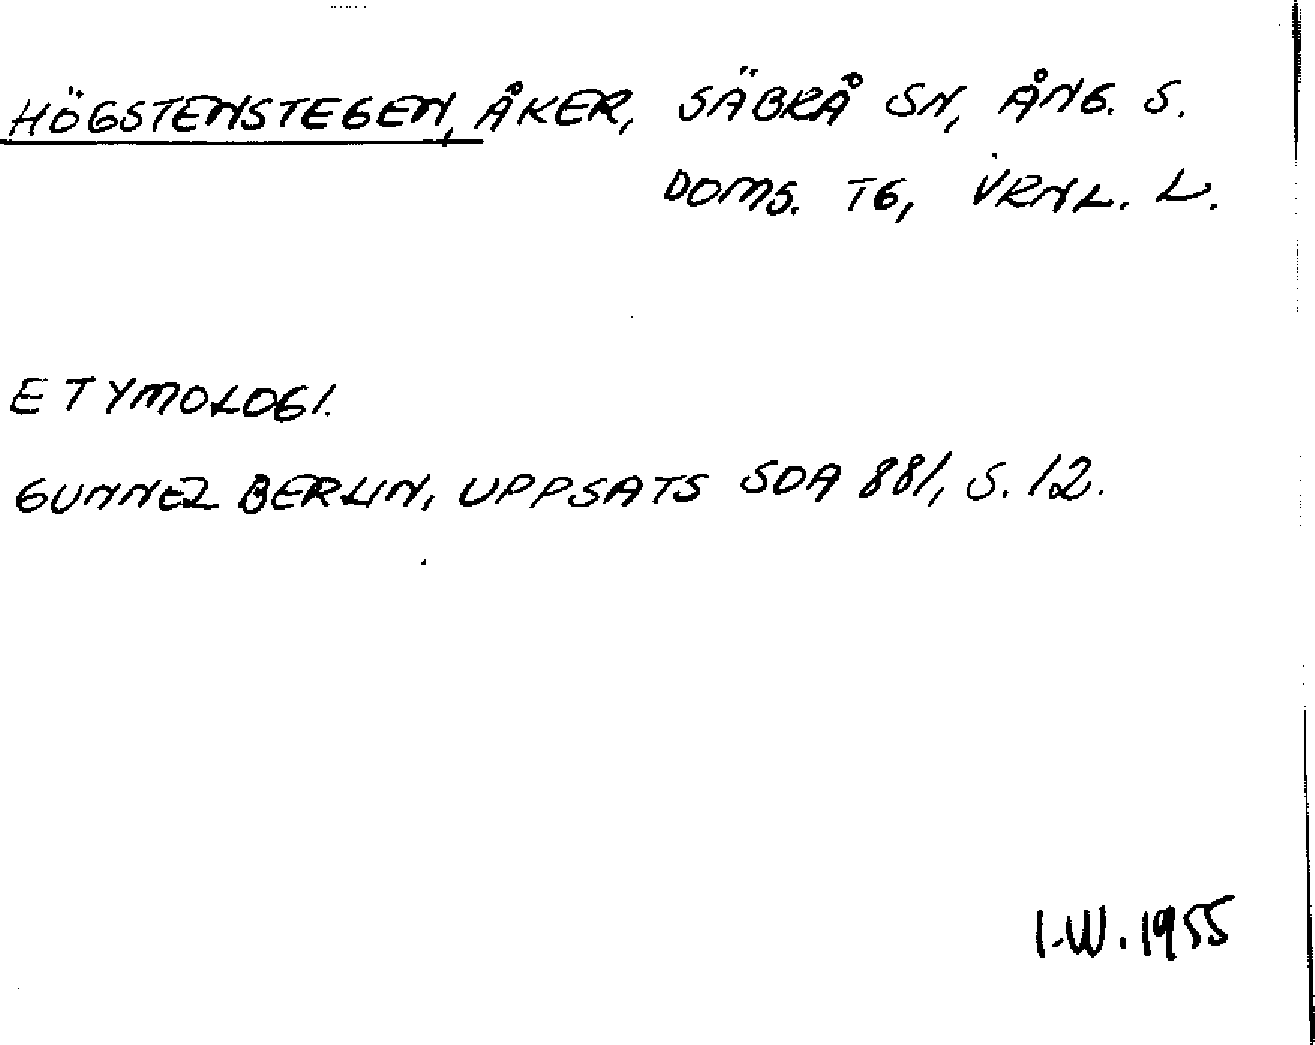 HÖGSTENSTEGEN, ÅKER, SÄBRÅ SN, ÅNG. S.
DOMS. TG, VRNL. L.
ETYMOLOGI.
GUNNEL BERLIN, UPPSATS SOA 881, S. 12.
I.W. 1955